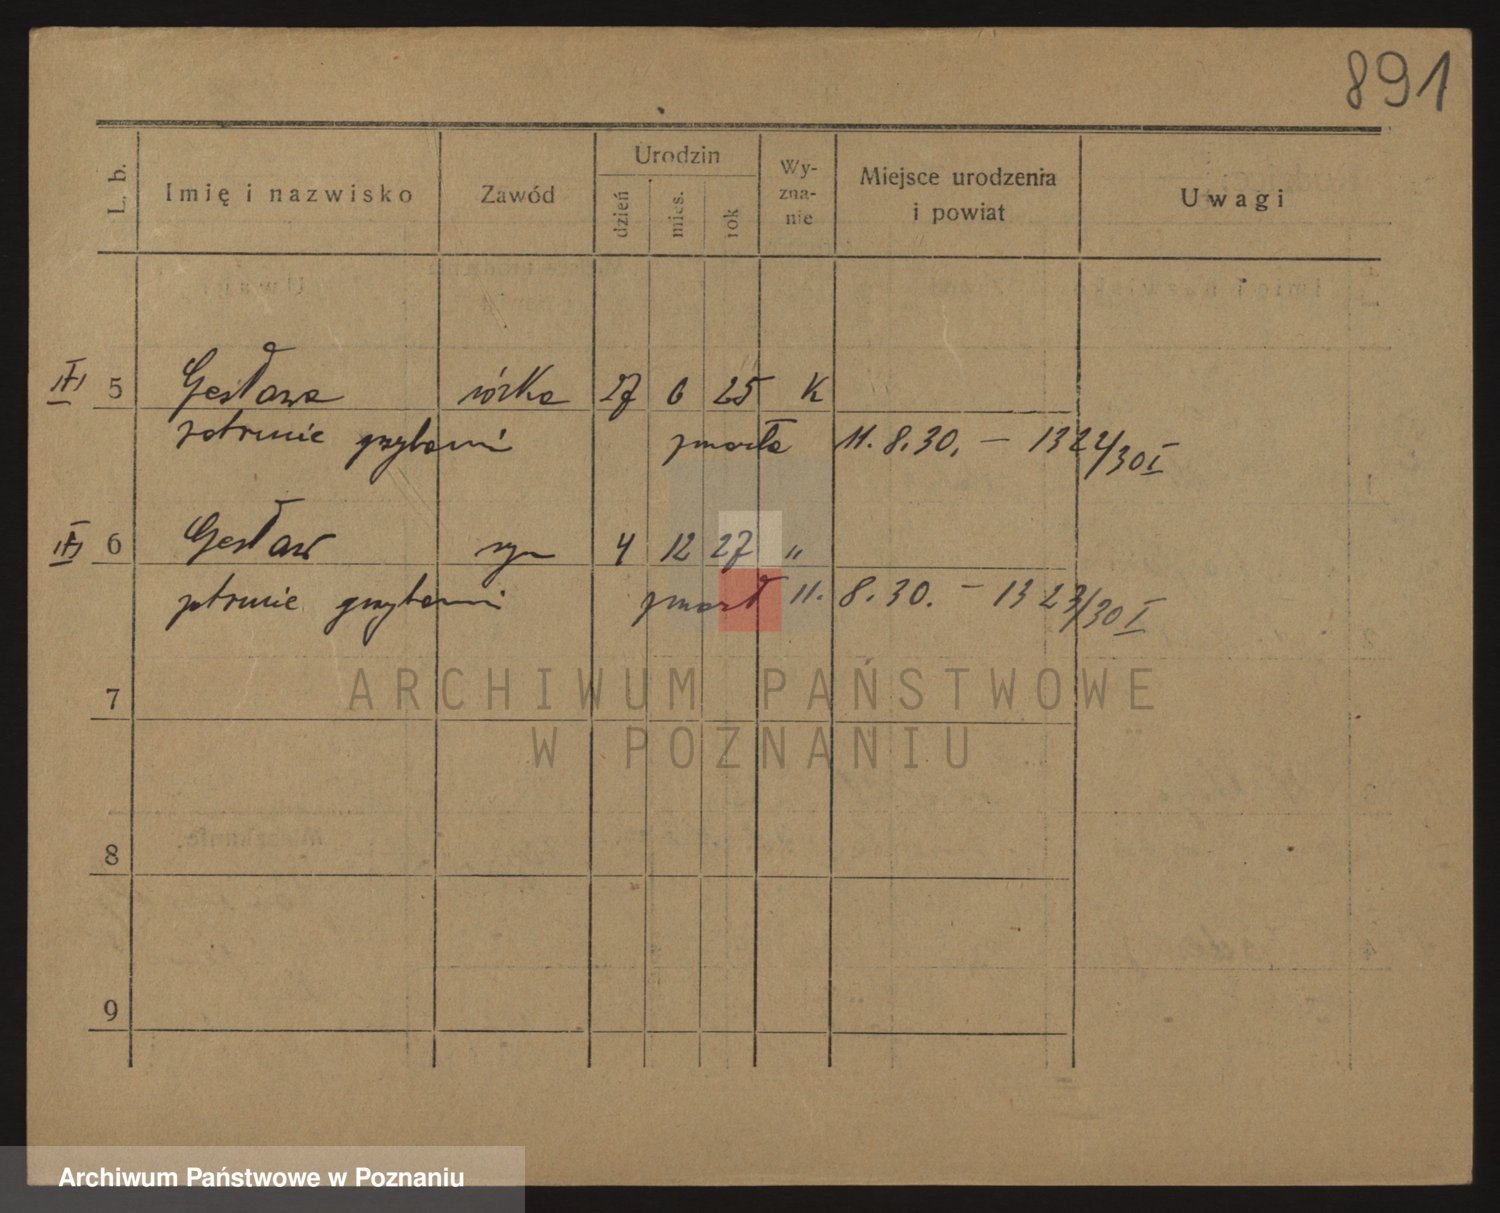 891
L. b. Imię i nazwisko Zawód Urodzin dzień mies. rok Wy-zna-nie Miejsce urodzenia i powiat Uwagi
III 5 Gesława córka 27 6 25 K
zatrucie grzybami zmarła 11. 8. 30. — 1322/30 I
III 6 Gesław syn 4 12 27 "
zatrucie grzybami zmarł 11. 8. 30. — 1323/30 I
7
8
9
ARCHIWUM PAŃSTWOWE
W POZNANIU
Archiwum Państwowe w Poznaniu